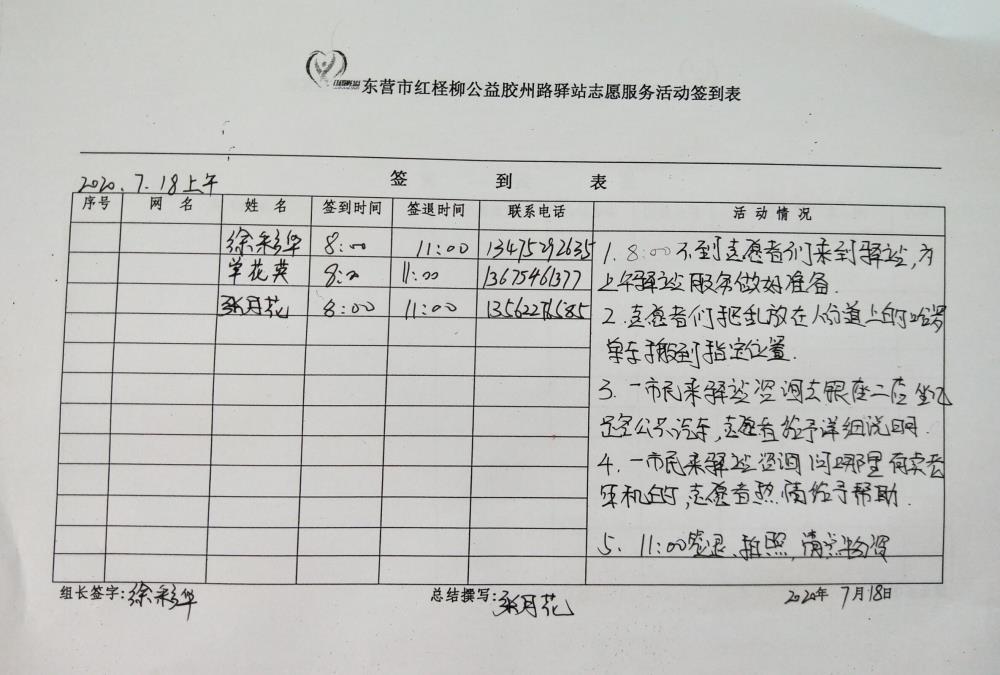 东营市红柽柳公益胶州路驿站志愿服务活动签到表
2020.7.18上午
签 到 表
序号 网 名 姓 名 签到时间 签退时间 联系电话 活 动 情 况
徐彩华 8:00 11:00 13475292635
单花英 8:00 11:00 13675461377
张月花 8:00 11:00 13562276585
1. 8:00不到志愿者们来到驿站,为
上午驿站服务做好准备.
2.志愿者们把乱放在人行道上的哈罗
单车搬到指定位置.
3.一市民来驿站咨询去银座二店坐几
路公交汽车,志愿者给予详细说明.
4.一市民来驿站咨询问哪里有卖老
年机的,志愿者热情给予帮助.
5. 11:00签退、拍照,清点物资
组长签字:徐彩华 总结撰写:张月花 2020年 7月18日